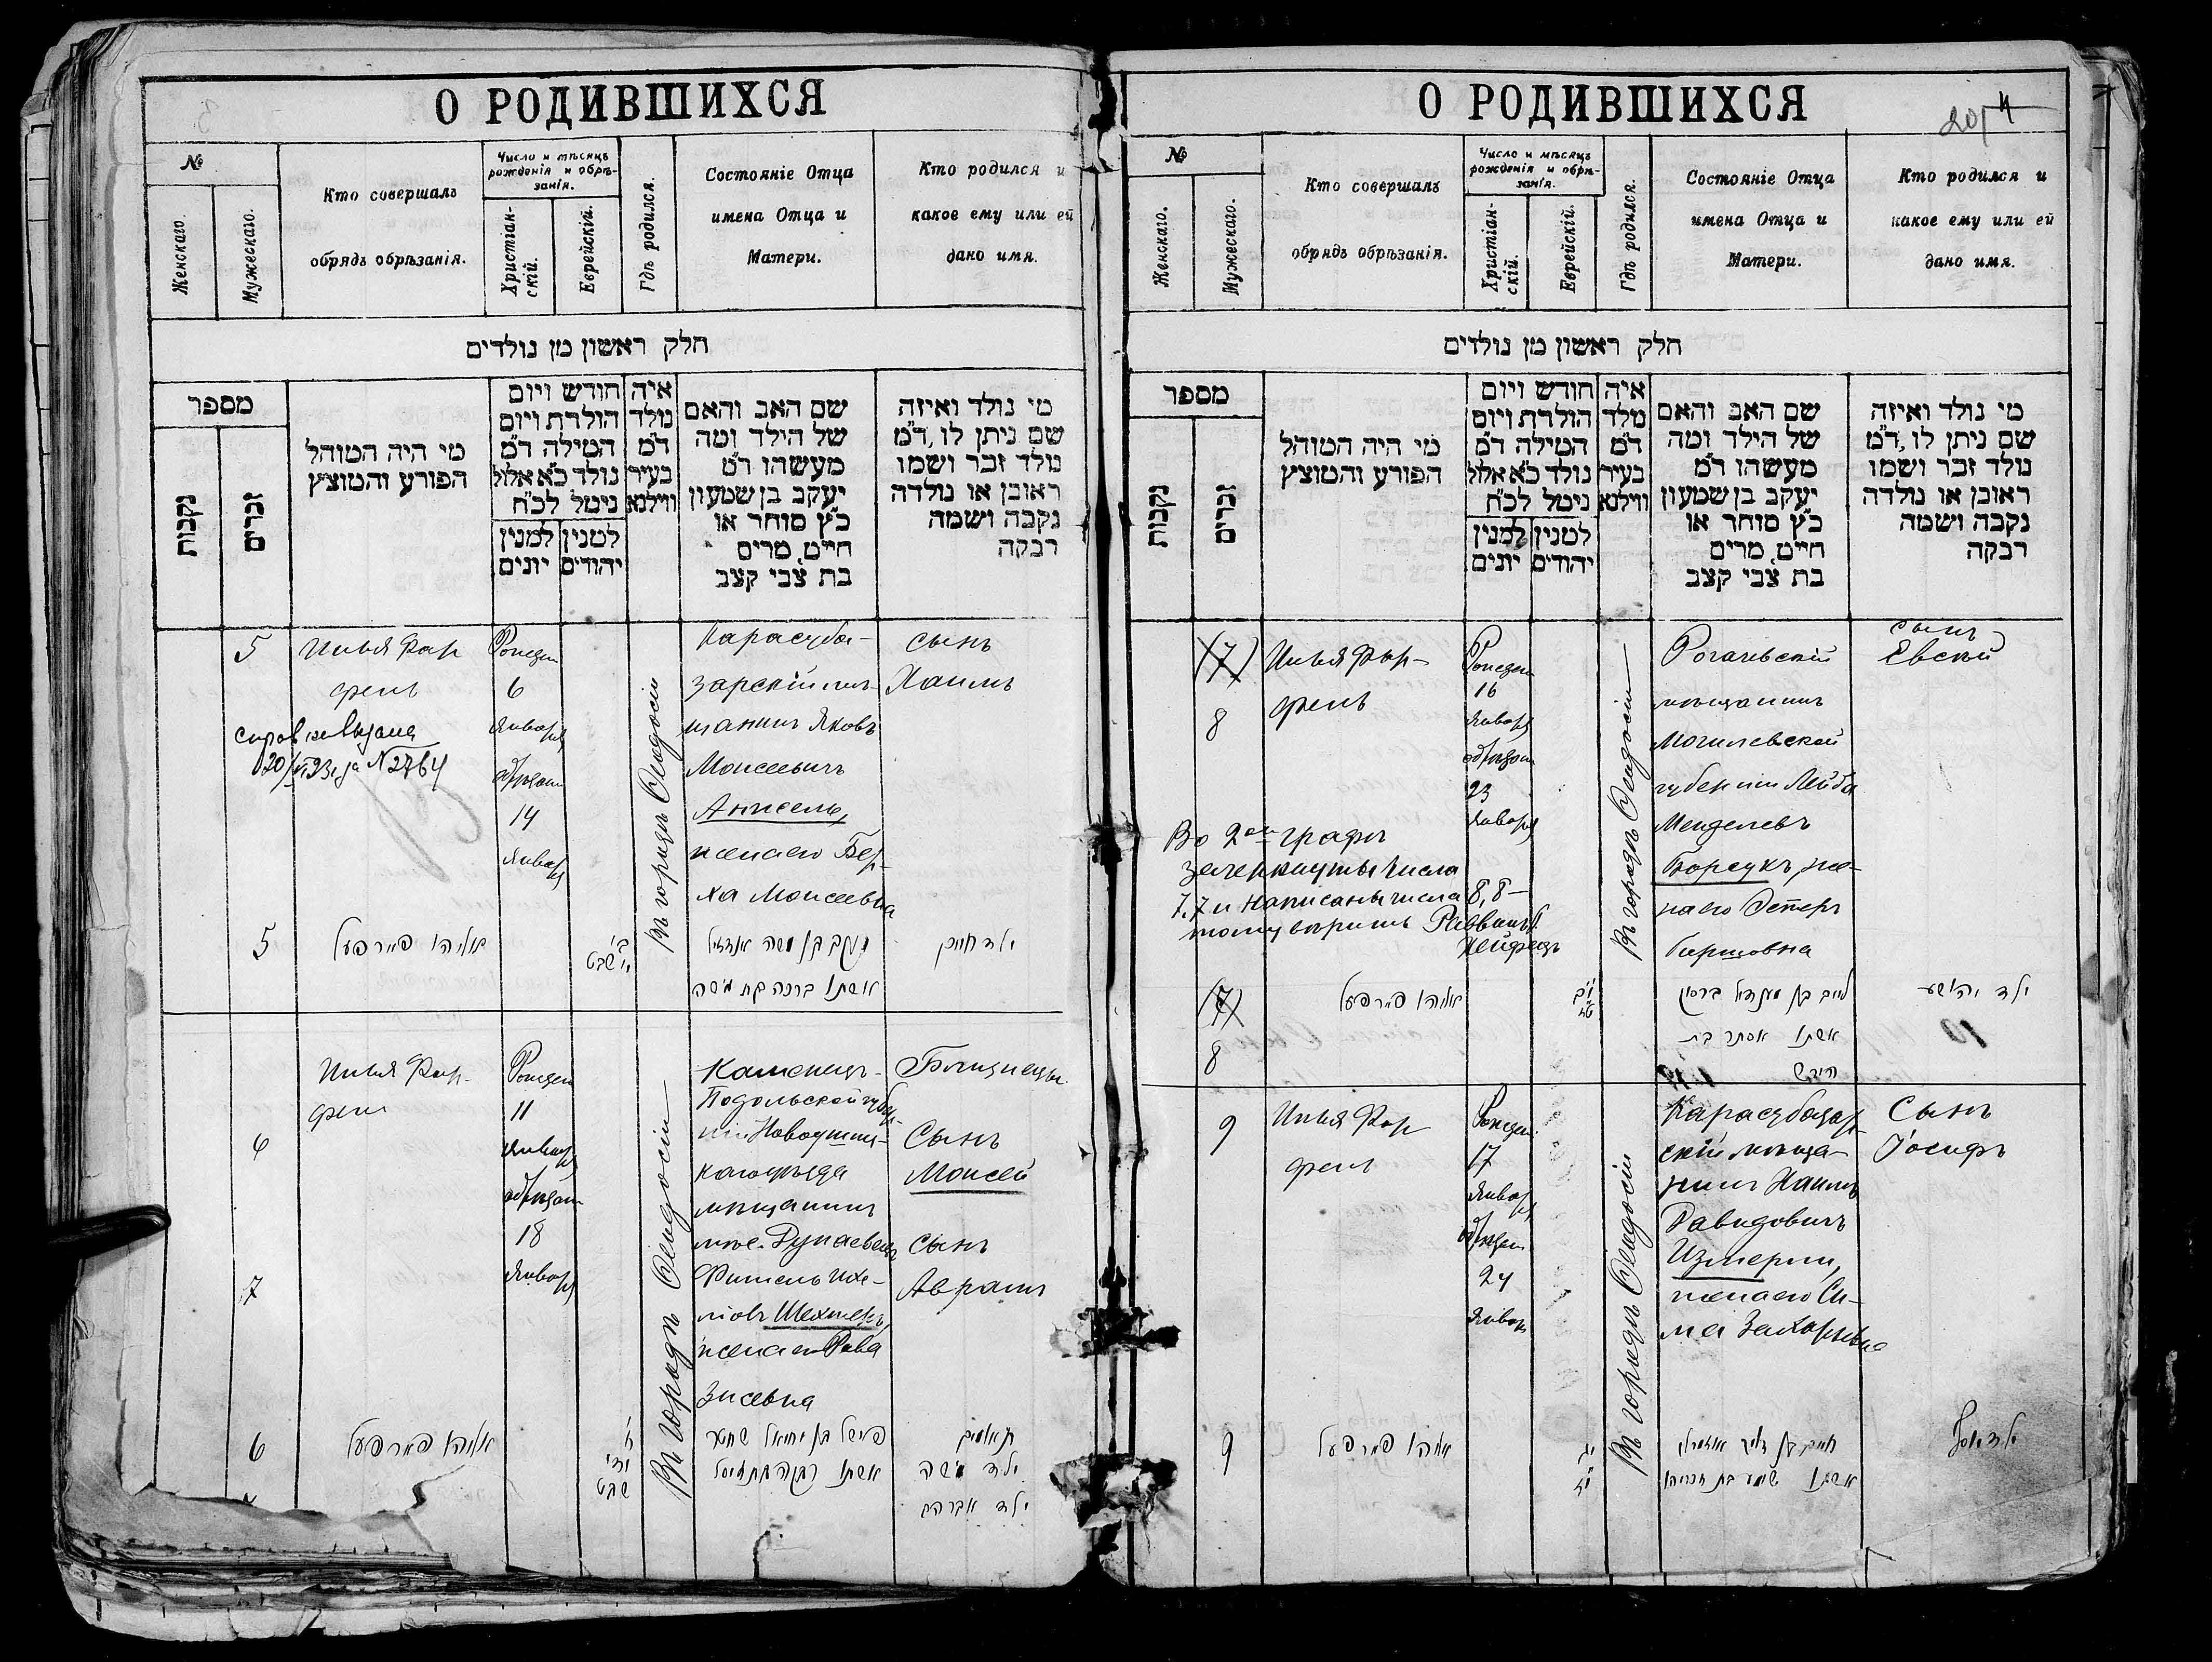 О РОДИВШИХСЯ
№
Женскаго.
Мужескаго.
Кто совершалъ
обрядъ обрѣзанія.
Число и мѣсяцъ
рожденія и обрѣ-
занія.
Христіан-
скій.
Еврейскій.
Гдѣ родился.
Состояніе Отца
имена Отца и
Матери.
Кто родился и
какое ему или ей
дано имя.
חלק ראשון מן נולדים
מספר
נקבות
זכרים
מי היה המוהל
הפורע והמוצץ
חודש ויום
הולדת ויום
המילה ד"מ
נולד כ"א אלול
ניטל לכ"ח
למנין
יונים
למנין
יהודים
איה
נולד
ד"מ
בעיר
ווילנא
שם האב והאם
של הילד ומה
מעשהו ד"מ
יעקב בן שמעון
כ"ץ סוחר או
חייט, מרים
בת צבי קצב
מי נולד ואיזה
שם ניתן לו, ד"מ
נולד זכר ושמו
ראובן או נולדה
נקבה ושמה
רבקה
5
Илья Фар
фель
20/VI 23 г за № 2764
Рожден
6
Января
обрѣзан
14
Января
Въ городѣ Ѳеодосіи
Карасуба-
зарскій мѣ-
щанинъ Яковъ
Моисеевичъ
Анжель,
жена его Бер-
ха Моисеевна
сынъ
Хаимъ
5
אליהו פארפעל
שבט
יעקב בן משה
אשתו ברכה בת משה
ילד חיים
6
7
Илья Фар-
фель
Рожден
11
Января
обрѣзан
18
Января
Въ городѣ Ѳеодосіи
Каменецъ-
Подольской губер-
ніи Новоушиц-
каго уѣзда
мѣщанинъ
мѣс. Дунаевецъ
Фишель Ихе-
ловъ Шехтеръ,
жена его Рива
Зисевна
Близнецы
Сынъ
Моисей
Сынъ
Авраамъ
6
אליהו פארפעל
שבט
פישל בן יחיאל שחטר
תאומים
ילד משה
ילד אברהם
О РОДИВШИХСЯ
4
№
Женскаго.
Мужескаго.
Кто совершалъ
обрядъ обрѣзанія.
Число и мѣсяцъ
рожденія и обрѣ-
занія.
Христіан-
скій.
Еврейскій.
Гдѣ родился.
Состояніе Отца
имена Отца и
Матери.
Кто родился и
какое ему или ей
дано имя.
חלק ראשון מן נולדים
מספר
נקבות
זכרים
מי היה המוהל
הפורע והמוצץ
חודש ויום
הולדת ויום
המילה ד"מ
נולד כ"א אלול
ניטל לכ"ח
למנין
יונים
למנין
יהודים
איה
נולד
ד"מ
בעיר
ווילנא
שם האב והאם
של הילד ומה
מעשהו ד"מ
יעקב בן שמעון
כ"ץ סוחר או
חייט, מרים
בת צבי קצב
מי נולד ואיזה
שם ניתן לו, ד"מ
נולד זכר ושמו
ראובן או נולדה
נקבה ושמה
רבקה
(7)
8
Илья Фар-
фель
Рожден
16
Января
обрѣзан
23
Января
Во 2ой графѣ
зачеркнуты числа
7,7 и написаны числа 8,8 –
тому вѣримъ Раввинъ
Хейфецъ
Въ городѣ Ѳеодосіи
Рогачевскій
мѣщанинъ
Могилевской
губерніи Лейба
Менделевъ
Борсукъ, же-
на его Эстеръ
Гиршовна
сынъ
Евсей
(7)
8
אליהו פארפעל
אשתו אסתר בת
הירש
ילד יהושע
9
Илья Фар
фель
Рожден
17
Января
обрѣзан
24
Января
Въ городѣ Ѳеодосіи
Карасубазар-
скій мѣща-
нинъ Хаимъ
Давидовичъ
Измерли,
жена его Си-
ма Захарьевна
Сынъ
Іосифъ
9
אליהו פארפעל
חיים בן דוד
ילד יוסף